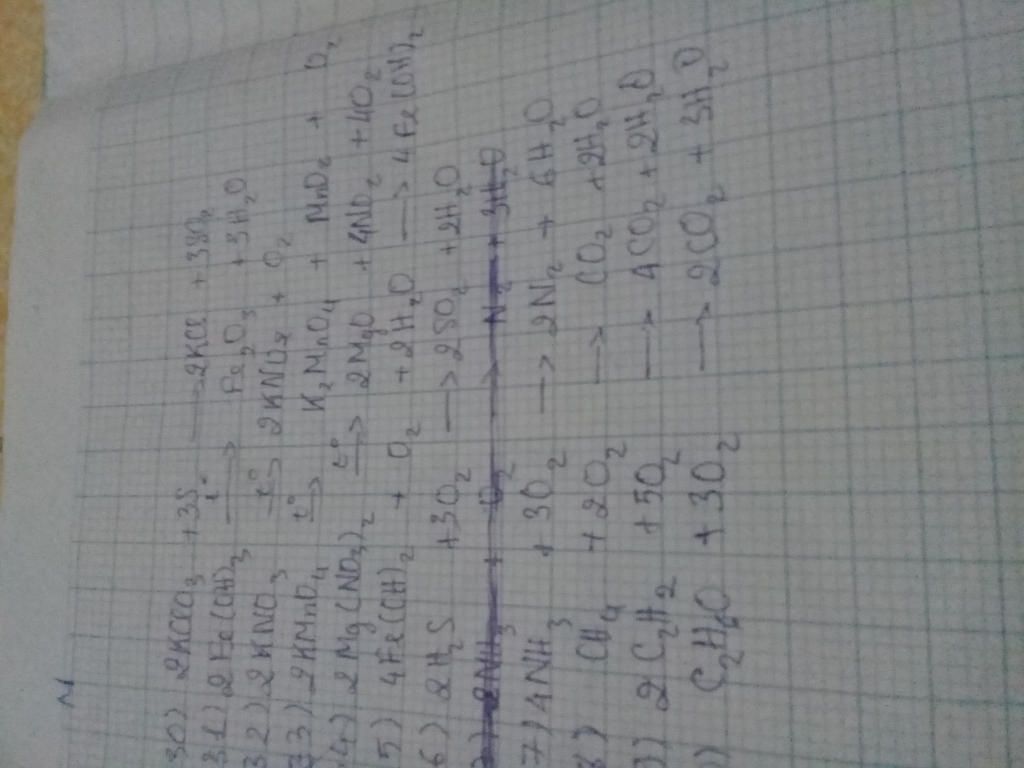 N
30) 2KClO₃ + 3S ⟶ 2KCl + 3SO₂
31) 2Fe(OH)₃ t°⟶ Fe₂O₃ + 3H₂O
32) 2KNO₃ t°⟶ 2KNO₂ + O₂
33) 2KMnO₄ t°⟶ K₂MnO₄ + MnO₂ + O₂
34) 2Mg(NO₃)₂ t°⟶ 2MgO + 4NO₂ + 4O₂
5) 4Fe(OH)₂ + O₂ + 2H₂O ⟶ 4Fe(OH)₂
6) 2H₂S + 3O₂ ⟶ 2SO₂ + 2H₂O
7) 2NH₃ + O₂ ⟶ N₂ + 3H₂O
7) 4NH₃ + 3O₂ ⟶ 2N₂ + 6H₂O
8) CH₄ + 2O₂ ⟶ CO₂ + 2H₂O
9) 2C₂H₂ + 5O₂ ⟶ 4CO₂ + 2H₂O
) C₂H₆O + 3O₂ ⟶ 2CO₂ + 3H₂O